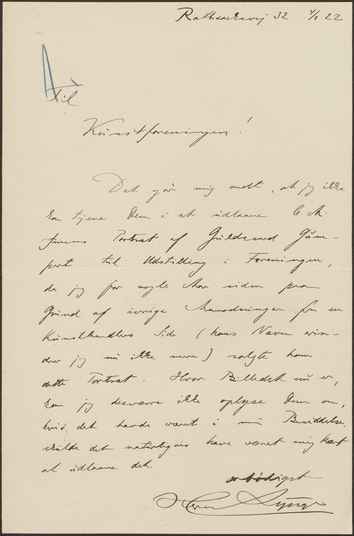 Rathsacksvej 32 4/1 22
Til
Kunstforeningen!
Det gør mig ondt, at jeg ikke
kan tjene Dem i at udlaane C A
Jensens Portræt af
til Udstilling i Foreningen,
da jeg for nogle Aar siden paa
Grund af ivrige Anmodninger fra en
Kunsthandlers Side (hans Navn erin-
drer jeg nu ikke mere) solgte ham
dette Portræt. Hvor Billedet nu er,
kan jeg desværre ikke oplyse Dem om,
hvis det havde været i min Besiddelse,
vilde det naturligvis have været mig kært
at udlaane det
ærbødigst